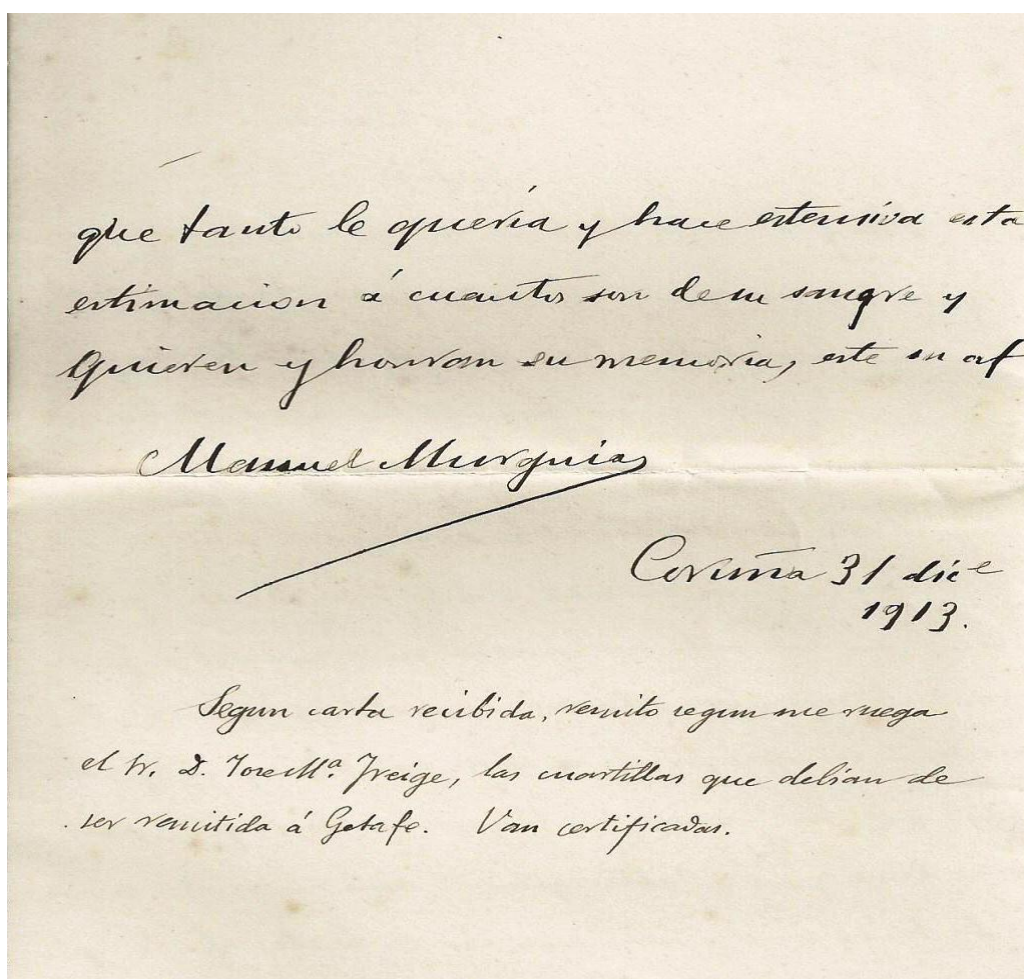 que tanto le quería y hace estensiva esta
estimacion á cuantos son de su sangre y
quieren y honran su memoria, este su af
Manuel Murguia
Coruña 31 dice
1913.
Segun carta recibida, remito segun me ruega
el Sr. D. Jose Mª. Freige, las cuartillas que debian de
ser remitida á Getafe. Van certificadas.